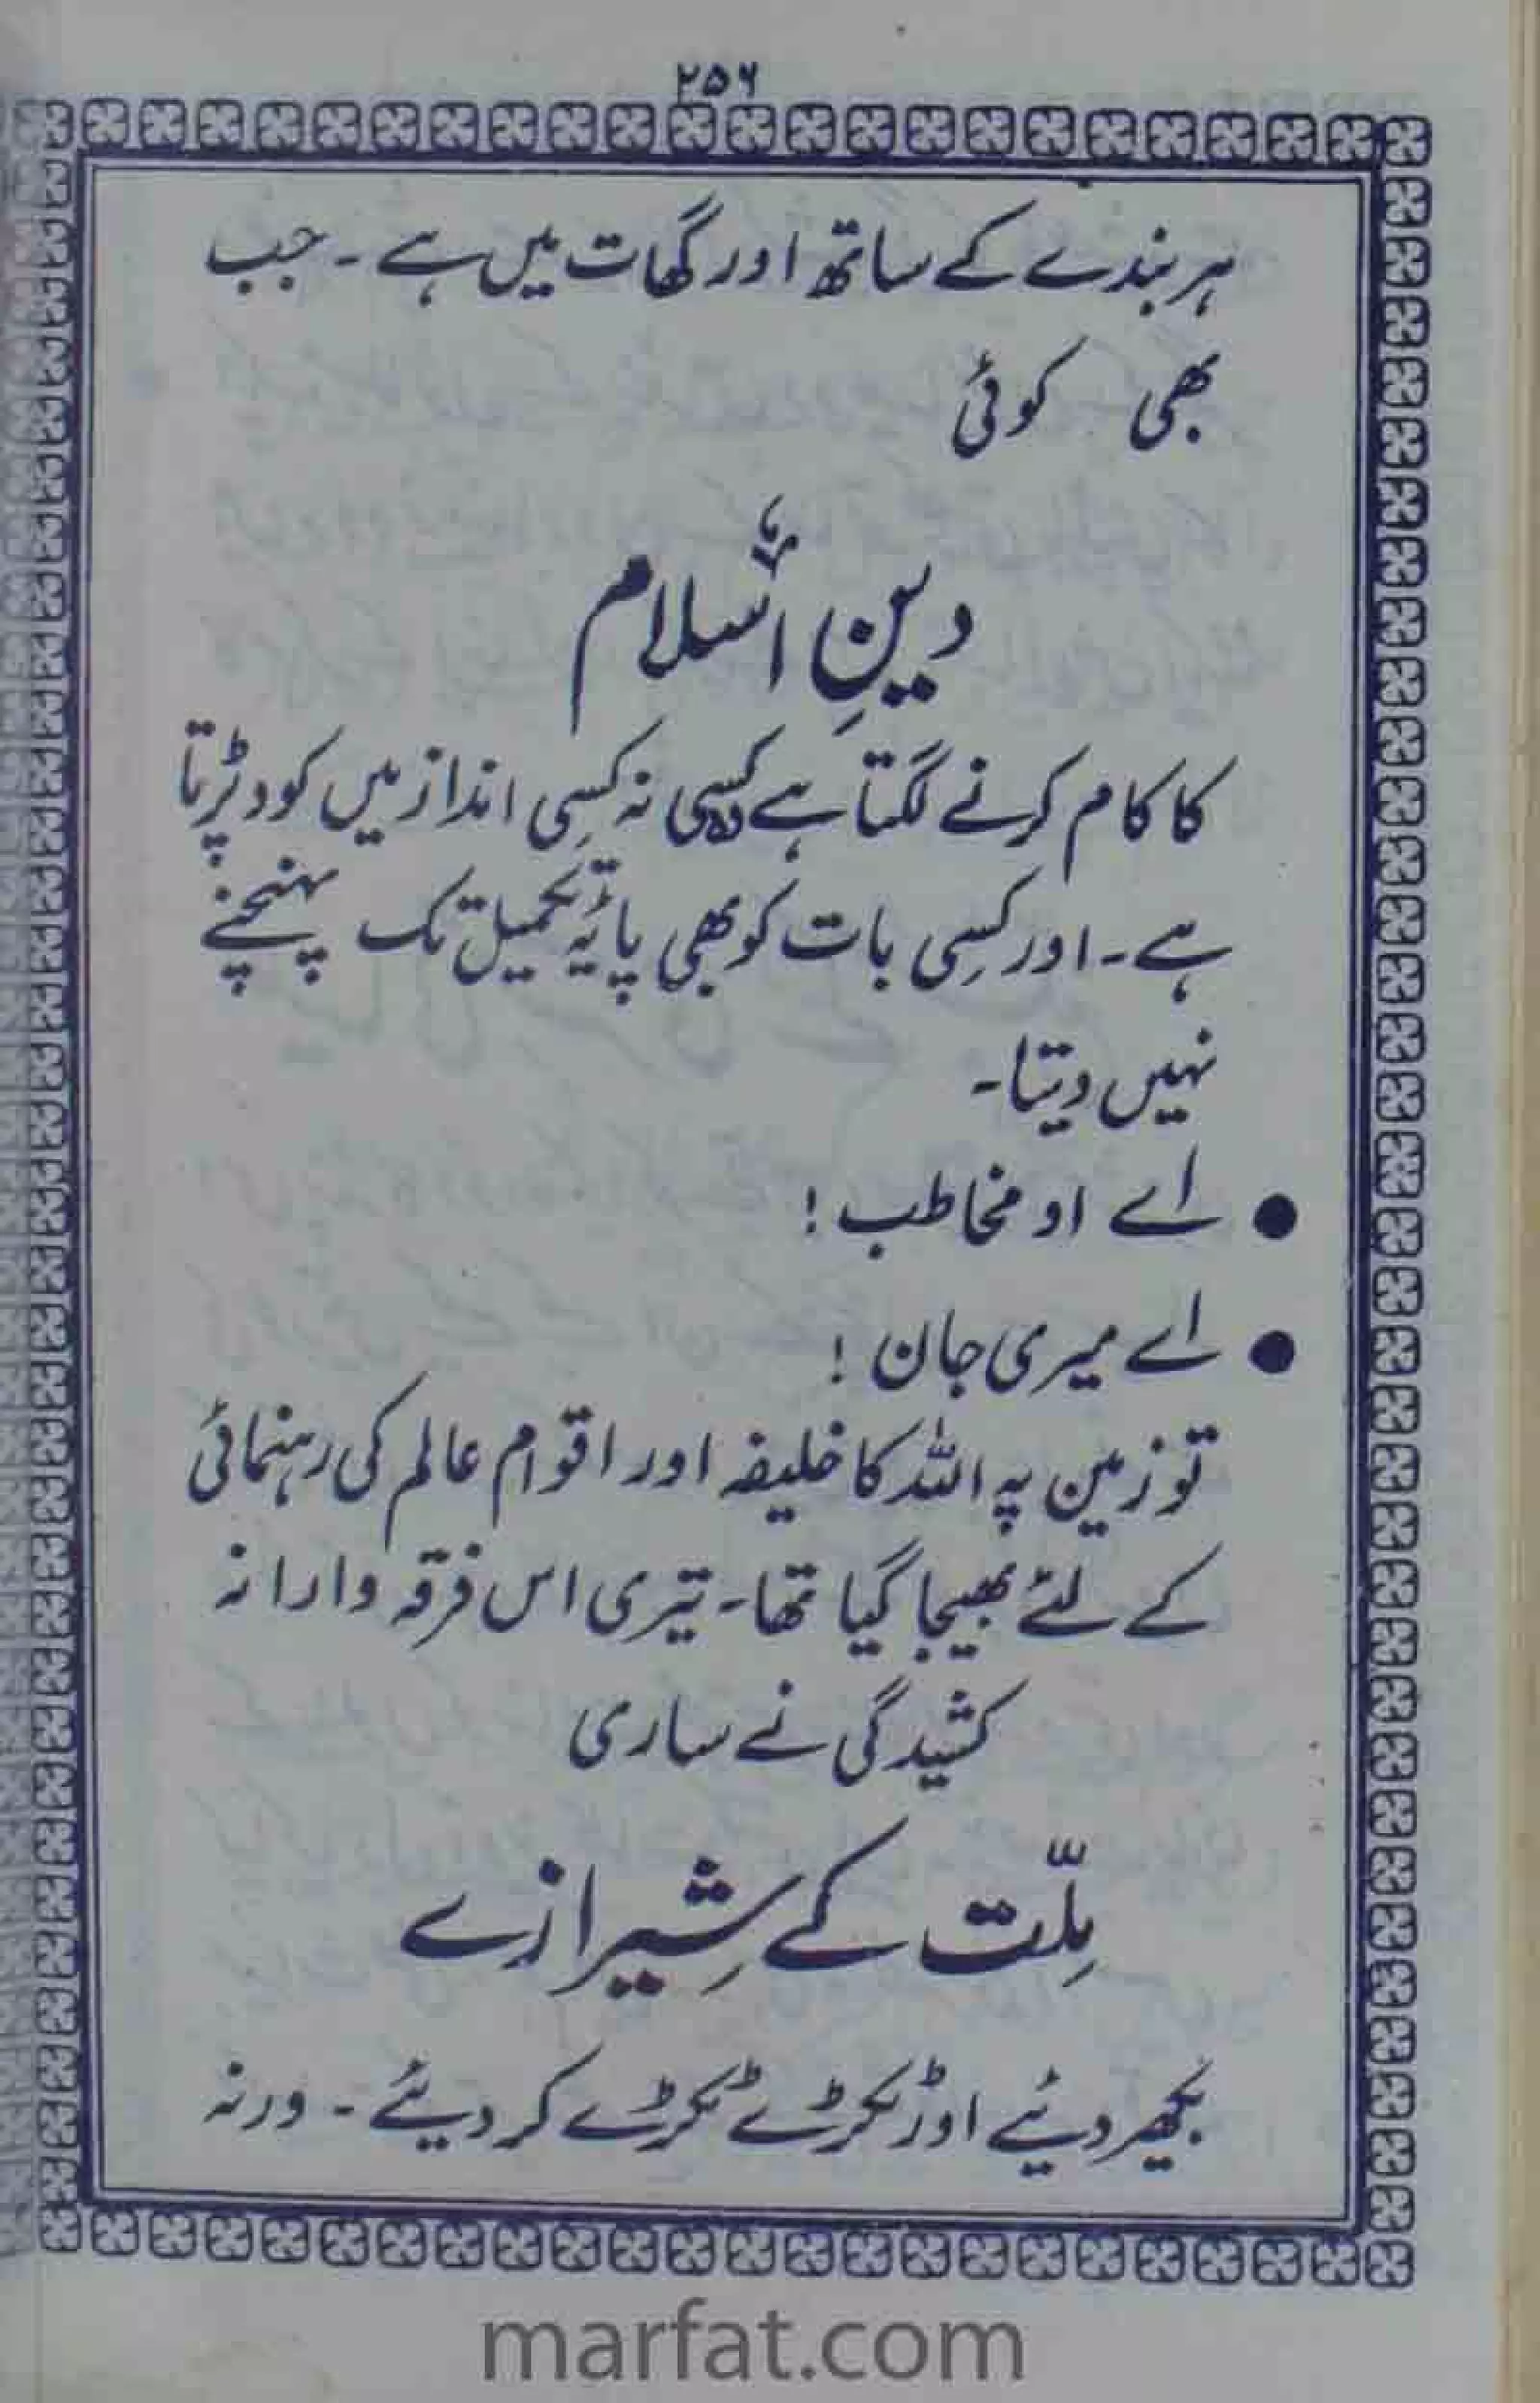 ۲۵۶
ہر بندے کے ساتھ اور گھات میں ہے ۔ جب
بھی کوئی
دینِ اسلام
کا کام کرنے لگتا ہے وہ کسی نہ کسی انداز میں کود پڑتا
ہے ۔ اور کسی بات کو بھی پائیہ تکمیل تک پہنچنے
نہیں دیتا ۔
● اے او مخاطب !
● اے میری جان !
تو زمین پہ اللہ کا خلیفہ اور اقوام عالم کی رہنمائی
کے لئے بھیجا گیا تھا ۔ تیری اس فرقہ وارانہ
کشیدگی نے ساری
مِلّت کے شِیرازے
بکھیر دئیے اور ٹکڑے ٹکڑے کر دیئے ۔ ورنہ
marfat.com